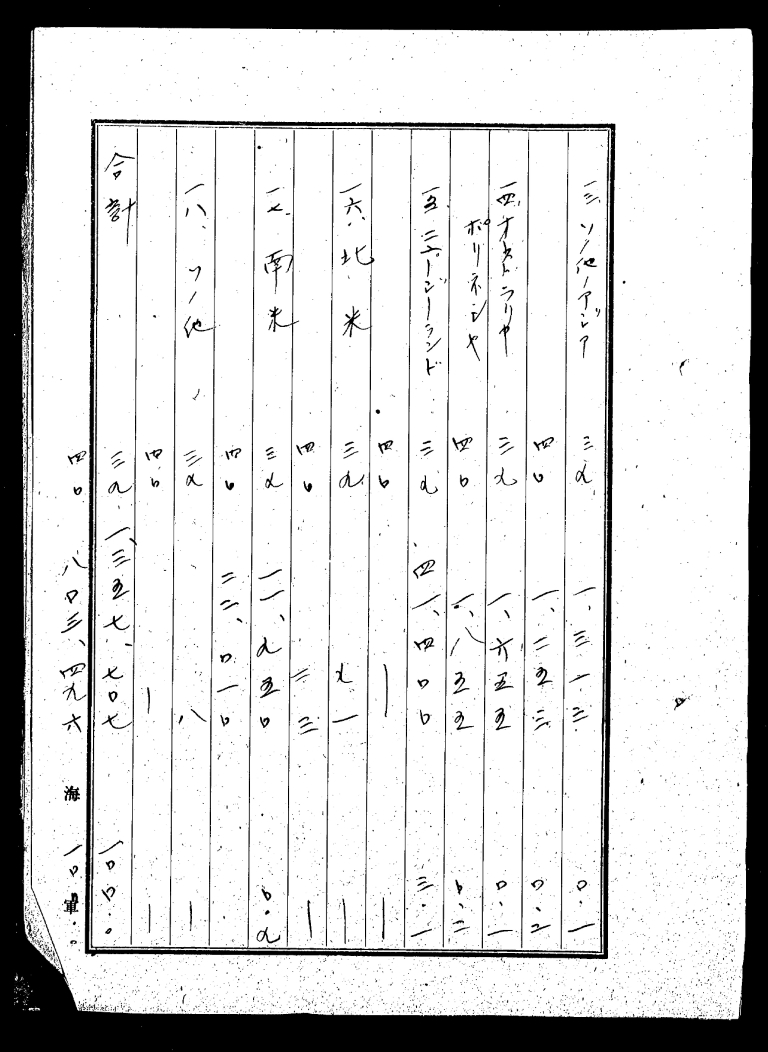 一三、ソノ他ノアジア 三九 一、三一三 〇.一
四〇 一、二五三 〇.二
一四、オーストラリヤ 三九 一、六五五 〇.一
ポリネシヤ 四〇 一、八五五 〇.二
一五、ニュージーランド 三九 四一、四〇〇 三.一
四〇 — —
一六、北米 三九 九一 —
四〇 二三 —
一七、南米 三九 一一、九五〇 〇.九
四〇 二二、〇一〇
一八、ソノ他 三九 八 —
四〇 — —
合計 三九 一、三五七、七〇七 一〇〇.〇
四〇 八〇三、四九六 一〇〇.〇
海軍